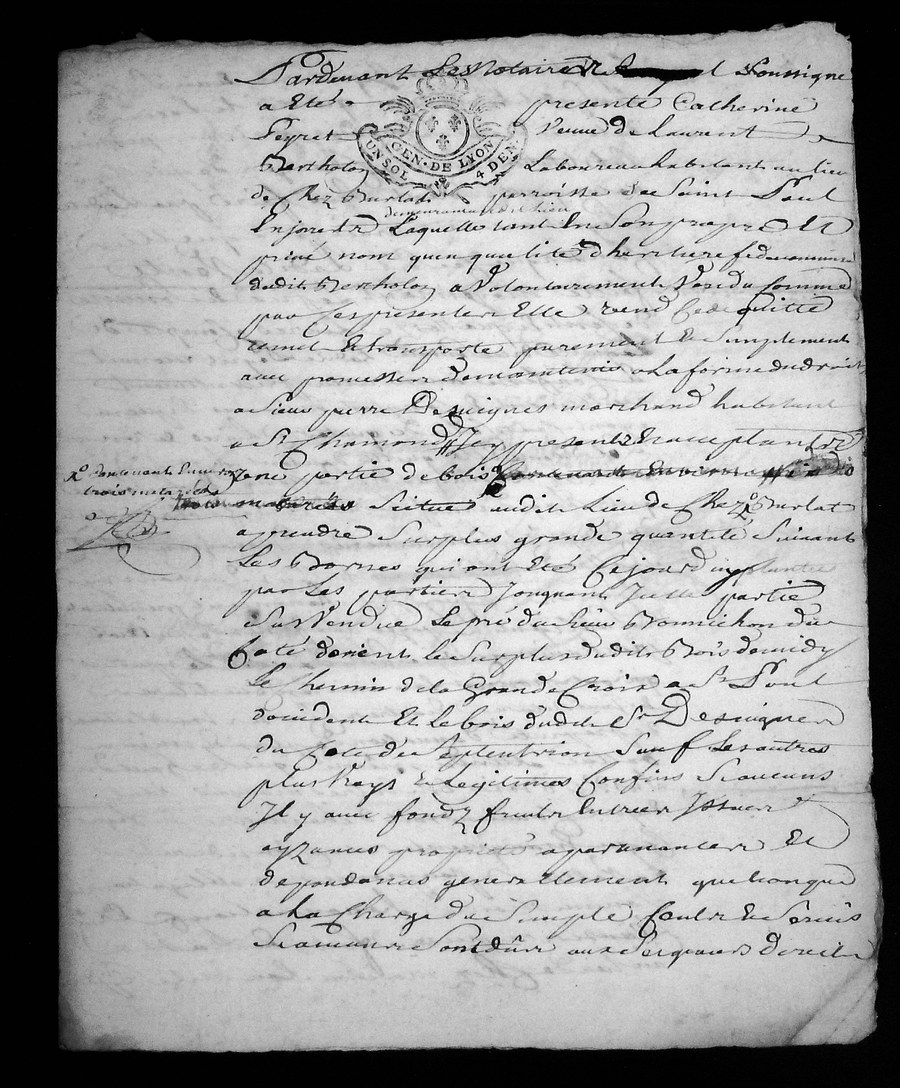 Pardevant Le Notaire R soussigne
a Eté presente Catherine
Peyret Veuve de Laurent
GEN. DE LYON
UN SOL 4 DEN.
Bertholon Laboureur habitant au lieu
de Chez Burlat parroisse de Saint Paul
En Jarest Laquelle tant En Son propre Et
privé nom qu'en qualité d'heritiere
dudit Bertholon a Volontairement Vendu Comme
par Ces presentes Elle Vend Cede quitte
remet Et transporte purement Et Simplement
avec promesse de maintenir a la forme du droit
a Sieur pierre Desvignes marchand habitant
a St Chamond Icy present Et acceptant
Une partie de bois
contenant Environ
trois meterées
Scitué audit Lieu de Chez Burlat
a prendre Surplus grande quantité Suivant
Les Bornes qui ont Eté Cejourd'huy plantée
par Les parties Joignant Icelle partie
Sus Vendue Le pré du Sieur Bonnichon du
Coté d'orient le Surplus dudit Bois de midy
Le Chemin de la Grande Croix a St Paul
d'occident Et Le bois dudit Sr Desvignes
du Coté de Septentrion Sauf Les autres
plus Vrays Et Legitimes Confins Si aucuns
Il y a avec fondz fruits Entrées Issues
ayzances proprietés apartenances Et
dependances generallement quelconque
a La Charge du Simple Cens Et Servis
Si aucuns Sont dûs aux Seigneurs directs